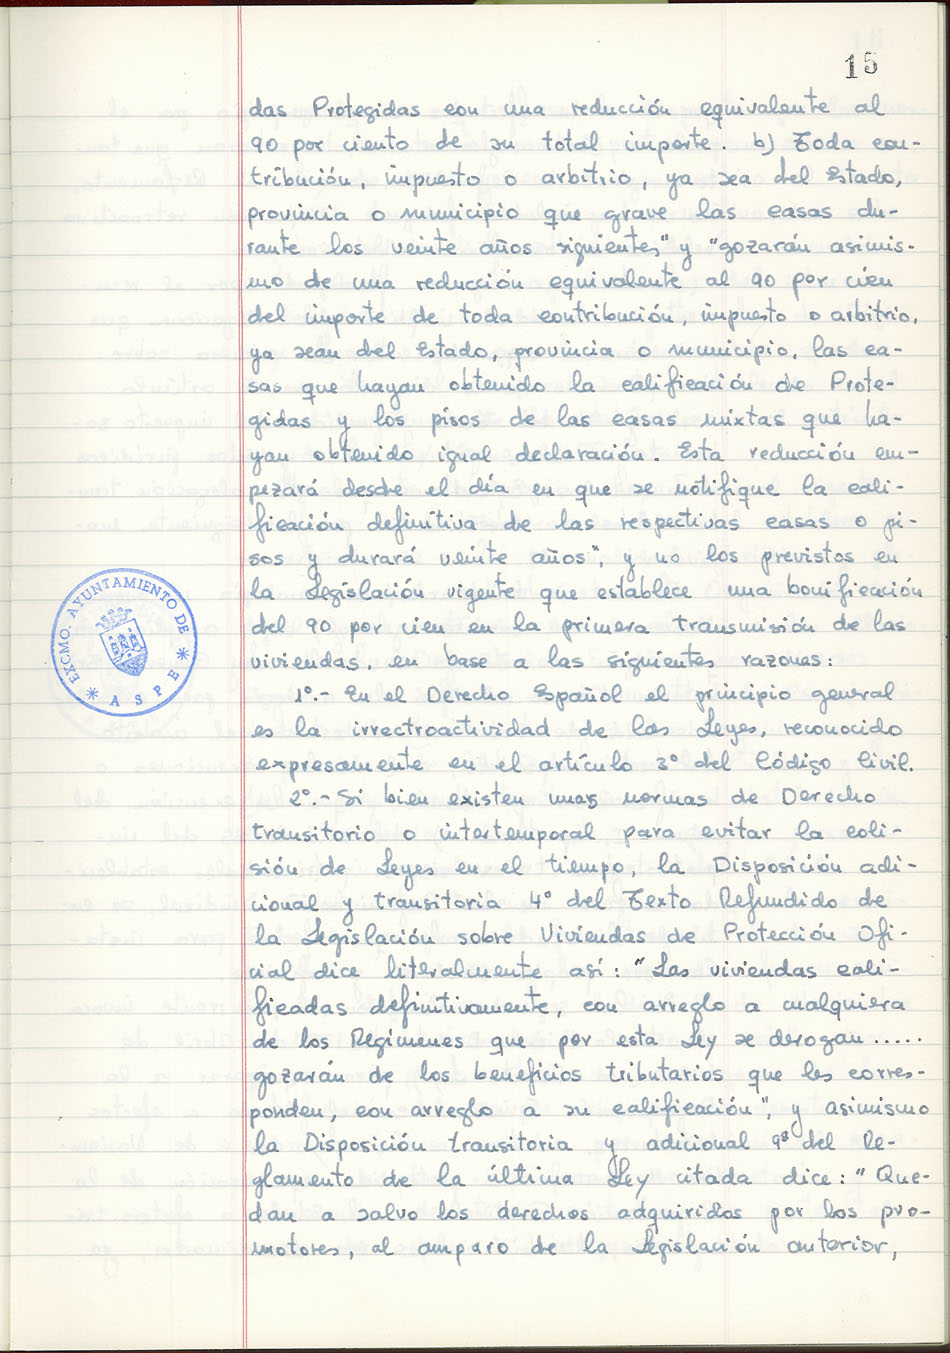 15
das Protegidas con una reducción equivalente al
90 por ciento de su total importe. b) Toda con-
tribución, impuesto o arbitrio, ya sea del Estado,
provincia o municipio que grave las casas du-
rante los veinte años siguientes" y "gozarán asimis-
mo de una reducción equivalente al 90 por cien
del importe de toda contribución, impuesto o arbitrio,
ya sean del Estado, provincia o municipio, las ca-
sas que hayan obtenido la calificación de Prote-
gidas y los pisos de las casas mixtas que ha-
yan obtenido igual declaración. Esta reducción em-
pezará desde el día en que se notifique la cali-
ficación definitiva de las respectivas casas o pi-
sos y durará veinte años", y no los previstos en
la Legislación vigente que establece una bonificación
del 90 por cien en la primera transmisión de las
viviendas, en base a las siguientes razones:
1º.- En el Derecho Español el principio general
es la irrectroactividad de las Leyes, reconocido
expresamente en el artículo 3º del Código Civil.
2º.- Si bien existen unas normas de Derecho
transitorio o intertemporal para evitar la coli-
sión de Leyes en el tiempo, la Disposición adi-
cional y transitoria 4º del Texto Refundido de
la Legislación sobre Viviendas de Protección Ofi-
cial dice literalmente así: "Las viviendas cali-
ficadas definitivamente, con arreglo a cualquiera
de los Regimenes que por esta Ley se derogan.....
gozarán de los beneficios tributarios que les corres-
ponden, con arreglo a su calificación", y asimismo
la Disposición transitoria y adicional 9ª del Re-
glamento de la última Ley citada dice: "Que-
dan a salvo los derechos adquiridos por los pro-
motores, al amparo de la Legislación anterior,
EXCMO. AYUNTAMIENTO DE
* ASPE *